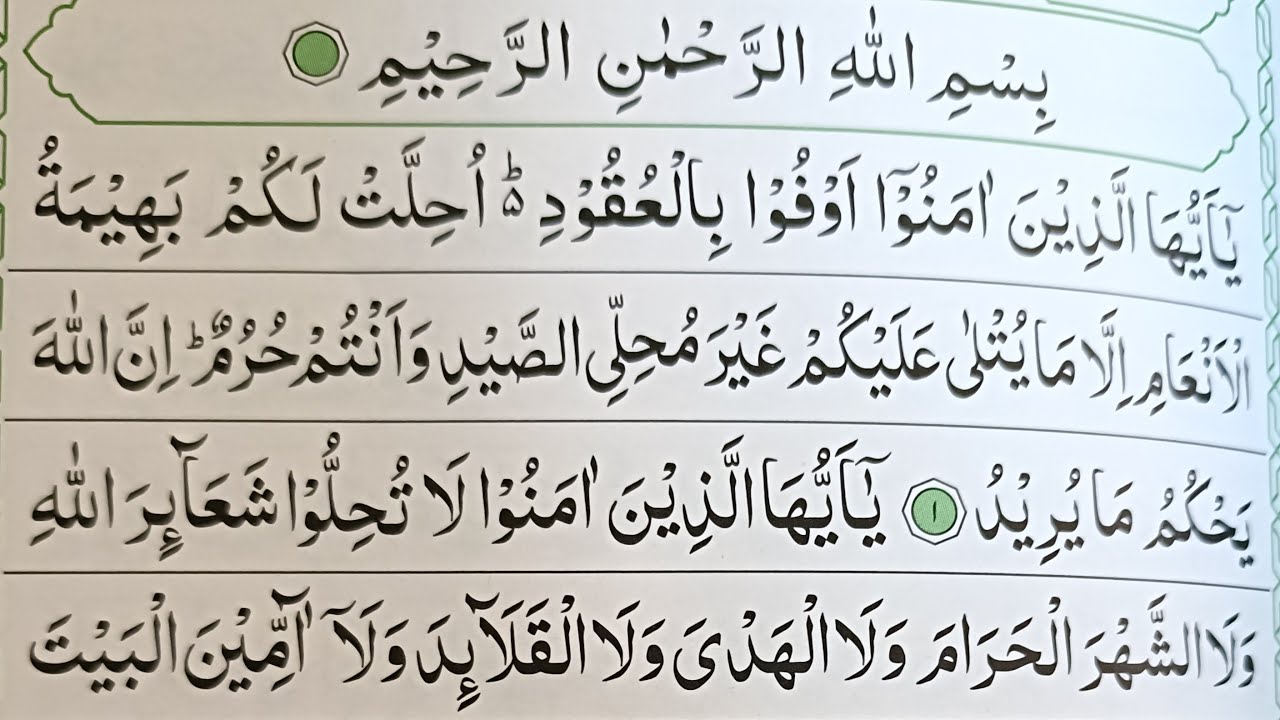 بِسْمِ اللّٰهِ الرَّحْمٰنِ الرَّحِيْمِ
يٰۤاَيُّهَا الَّذِيْنَ اٰمَنُوْۤا اَوْفُوْا بِالْعُقُوْدِ ؕ۵ اُحِلَّتْ لَكُمْ بَهِيْمَةُ
الْاَنْعَامِ اِلَّا مَا يُتْلٰى عَلَيْكُمْ غَيْرَ مُحِلِّى الصَّيْدِ وَاَنْتُمْ حُرُمٌ ؕ اِنَّ اللّٰهَ
يَحْكُمُ مَا يُرِيْدُ ۱ يٰۤاَيُّهَا الَّذِيْنَ اٰمَنُوْا لَا تُحِلُّوْا شَعَآىِٕرَ اللّٰهِ
وَلَا الشَّهْرَ الْحَرَامَ وَلَا الْهَدْىَ وَلَا الْقَلَآىِٕدَ وَلَاۤ آٰمِّيْنَ الْبَيْتَ